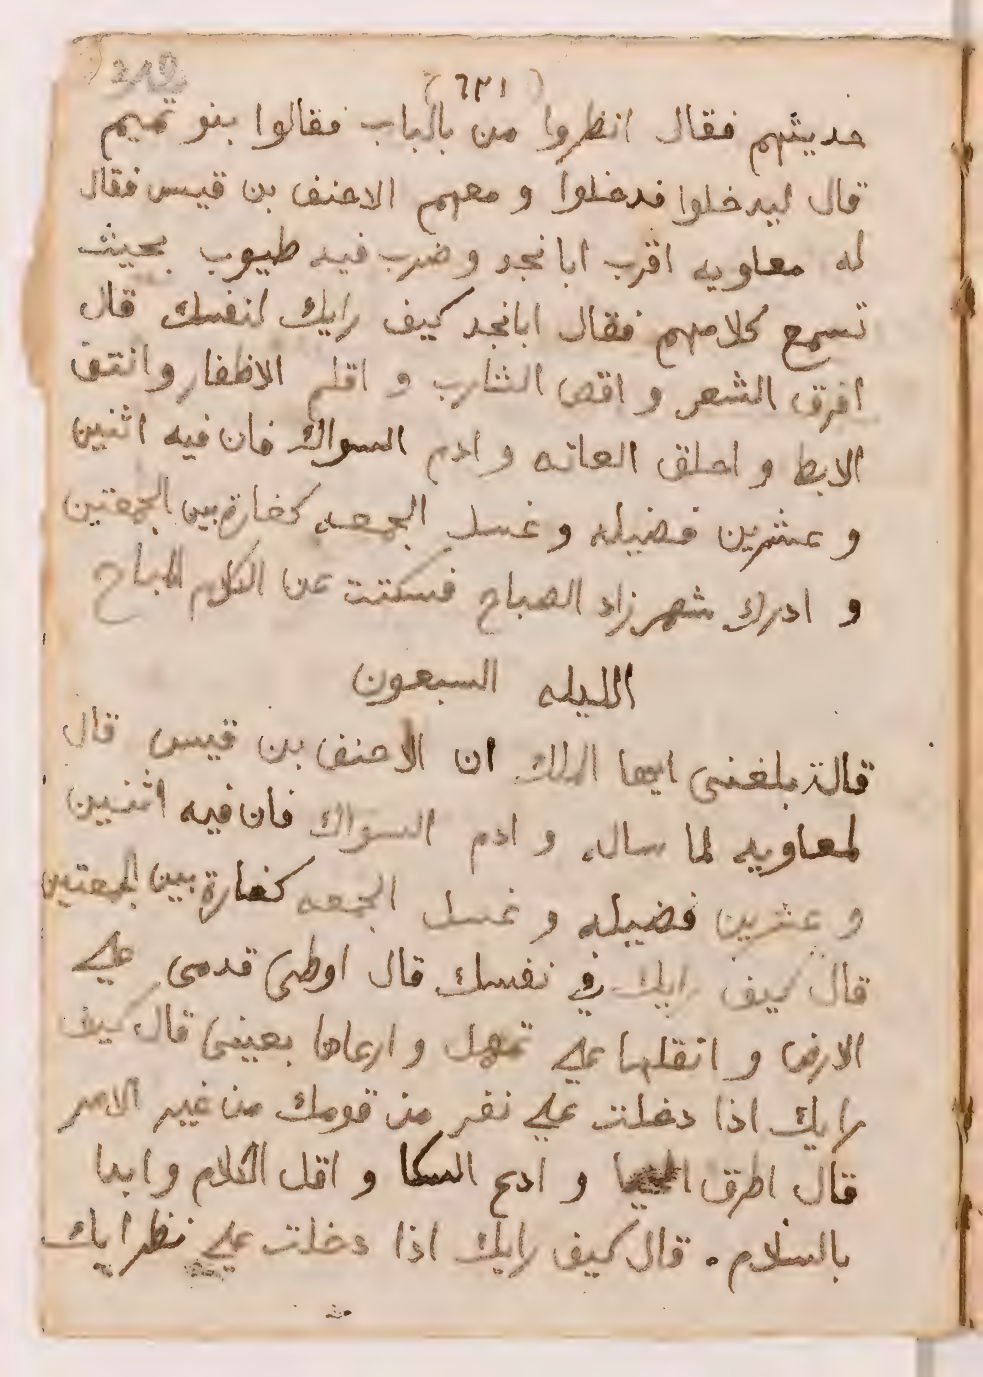 (٦٣١)
حديثهم فقال انظروا من بالباب فقالوا بنو تميم
قال ليدخلوا فدخلوا و معهم الاحنف بن قيس فقال
له معاويه اقرب ابا نجد و ضرب فيه طيوب بحيث
تسمع كلامهم فقال ابانجد كيف رايك لنفسك قال
افرق الشعر و اقص الشارب و اقلم الاظفار وانتف
الابط و احلق العانه و ادم السواك فان فيه اثنين
و عشرين فضيله و غسل الجمعه كفارة بين الجمعتين
و ادرك شهرزاد الصباح فسكتت عن الكلام المباح
الليله السبعون
قالة بلغنى ايها الملك ان الاحنف بن قيس قال
لمعاويه لما ساله و ادم السواك فان فيه اثنين
و عشرين فضيله و غسل الجمعه كفارة بين الجمعتين
قال كيف رايك في نفسك قال اوطى قدمى على
الارض و انقلها على تمهل و ارعاها بعينى قال كيف
رايك اذا دخلت على نفر من قومك من غير الامر
قال اطرق الحيا و ادع السكا و اقل الكلام و ابدا
بالسلام . قال كيف رايك اذا دخلت على نظرايك